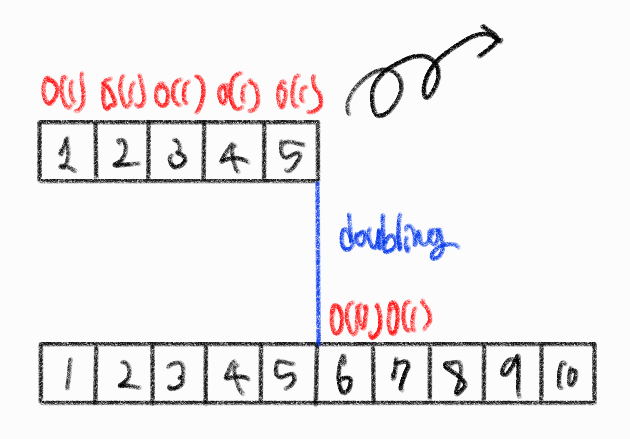 O(1) O(1) O(1) O(1) O(1)
1 2 3 4 5
doubling
O(n) O(1)
1 2 3 4 5 6 7 8 9 10